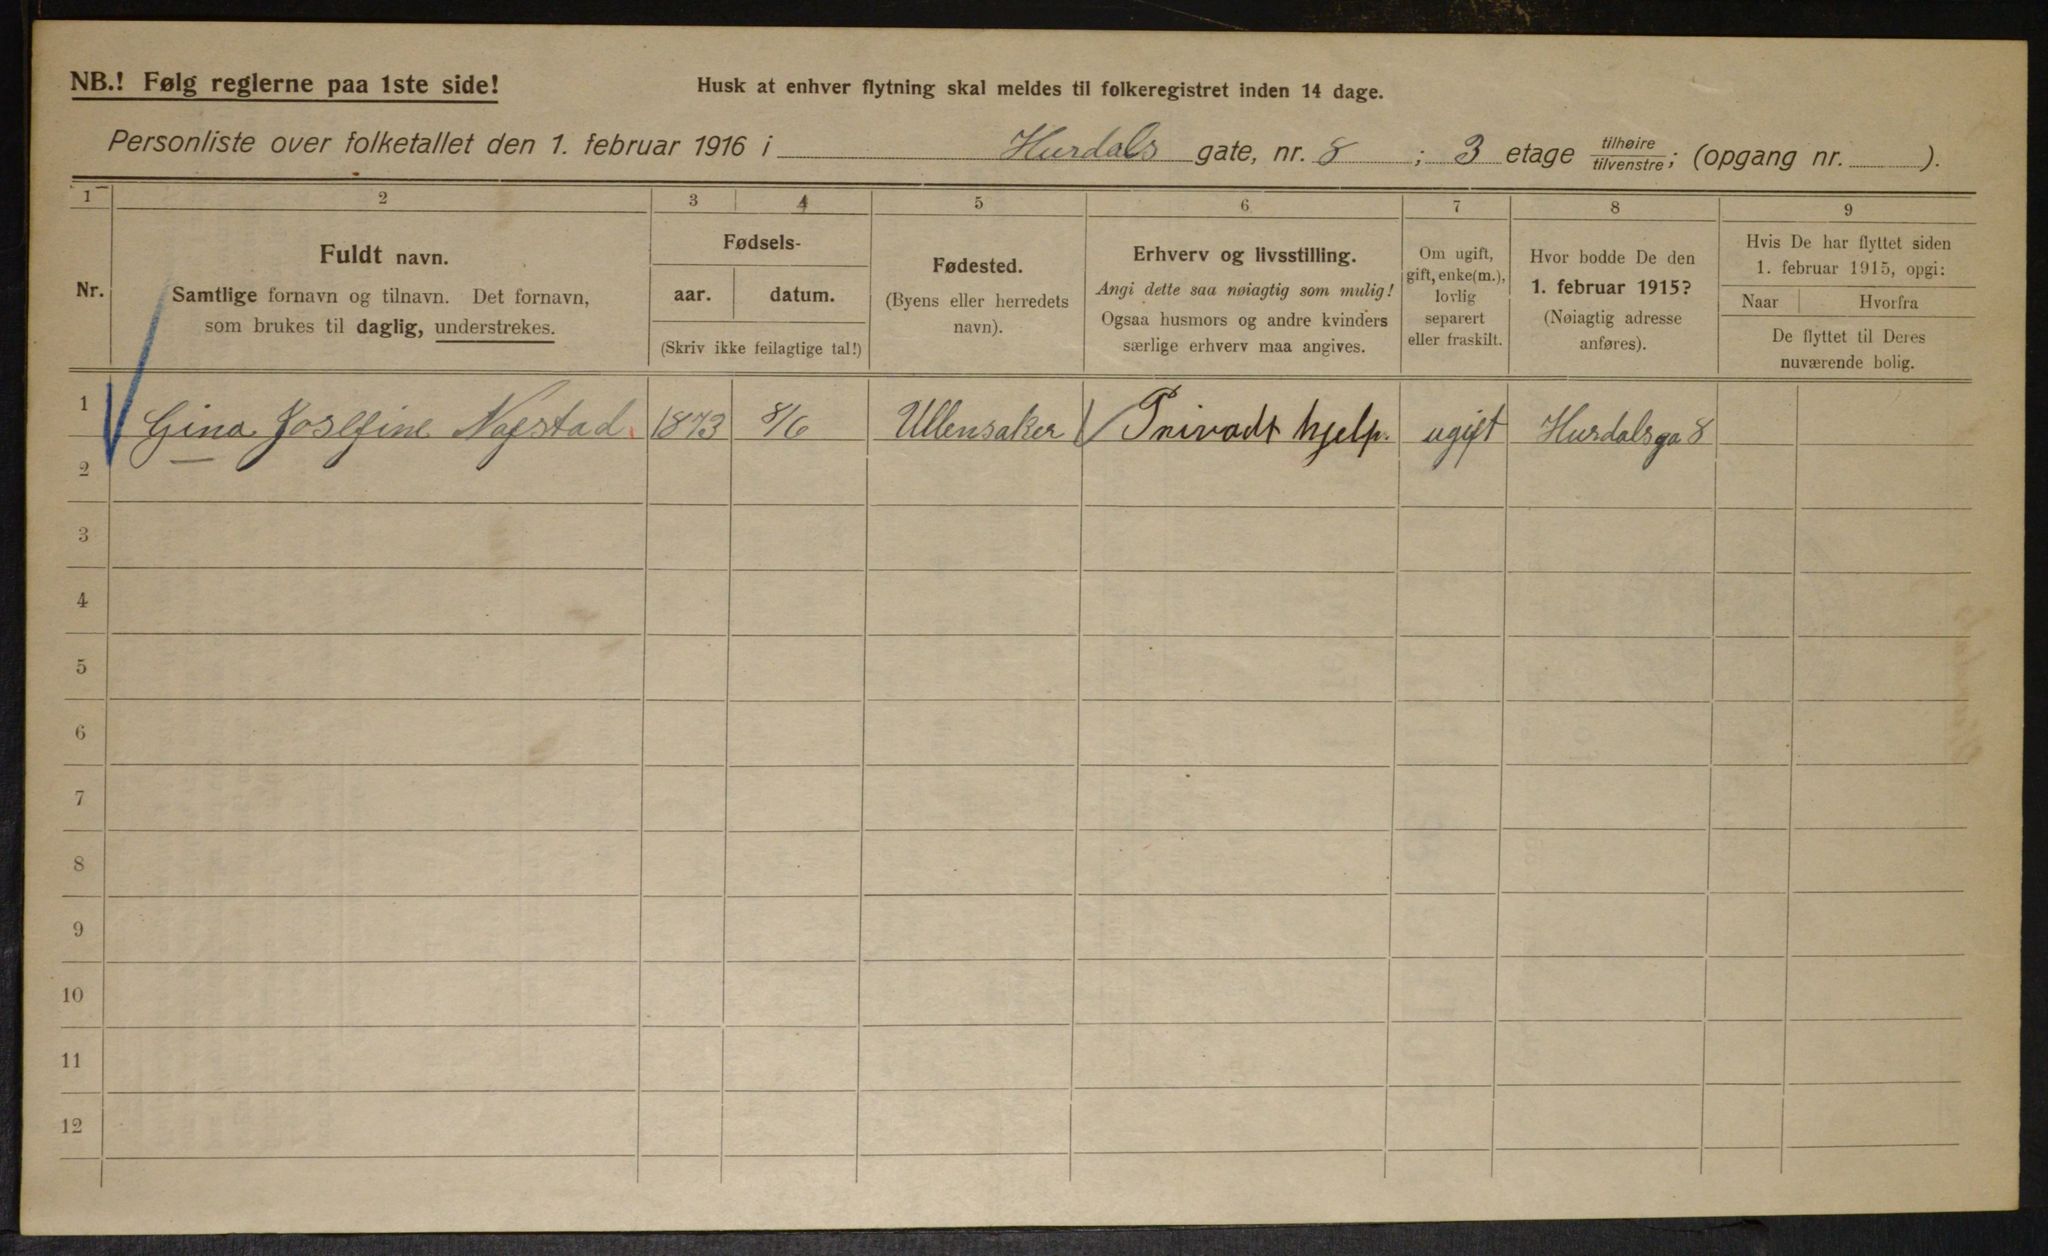 NB.! Følg reglerne paa 1ste side!
Husk at enhver flytning skal meldes til folkeregistret inden 14 dage.
Personliste over folketallet den 1. februar 1916 i Hurdals gate, nr. 8 ; 3 etage tilhøire/tilvenstre; (opgang nr. ).
1 2 3 4 5 6 7 8 9
Nr.
Fuldt navn.
Samtlige fornavn og tilnavn. Det fornavn,
som brukes til daglig, understrekes.
Fødsels-
aar. datum.
(Skriv ikke feilagtige tal!)
Fødested.
(Byens eller herredets
navn).
Erhverv og livsstilling.
Angi dette saa nøiagtig som mulig!
Ogsaa husmors og andre kvinders
særlige erhverv maa angives.
Om ugift,
gift, enke(m.),
lovlig
separert
eller fraskilt.
Hvor bodde De den
1. februar 1915?
(Nøiagtig adresse
anføres).
Hvis De har flyttet siden
1. februar 1915, opgi:
Naar Hvorfra
De flyttet til Deres
nuværende bolig.
1 Gina Josefine 1873 8/6 Ullensaker Privadt hjelp. ugift Hurdalsga 8
2
3
4
5
6
7
8
9
10
11
12